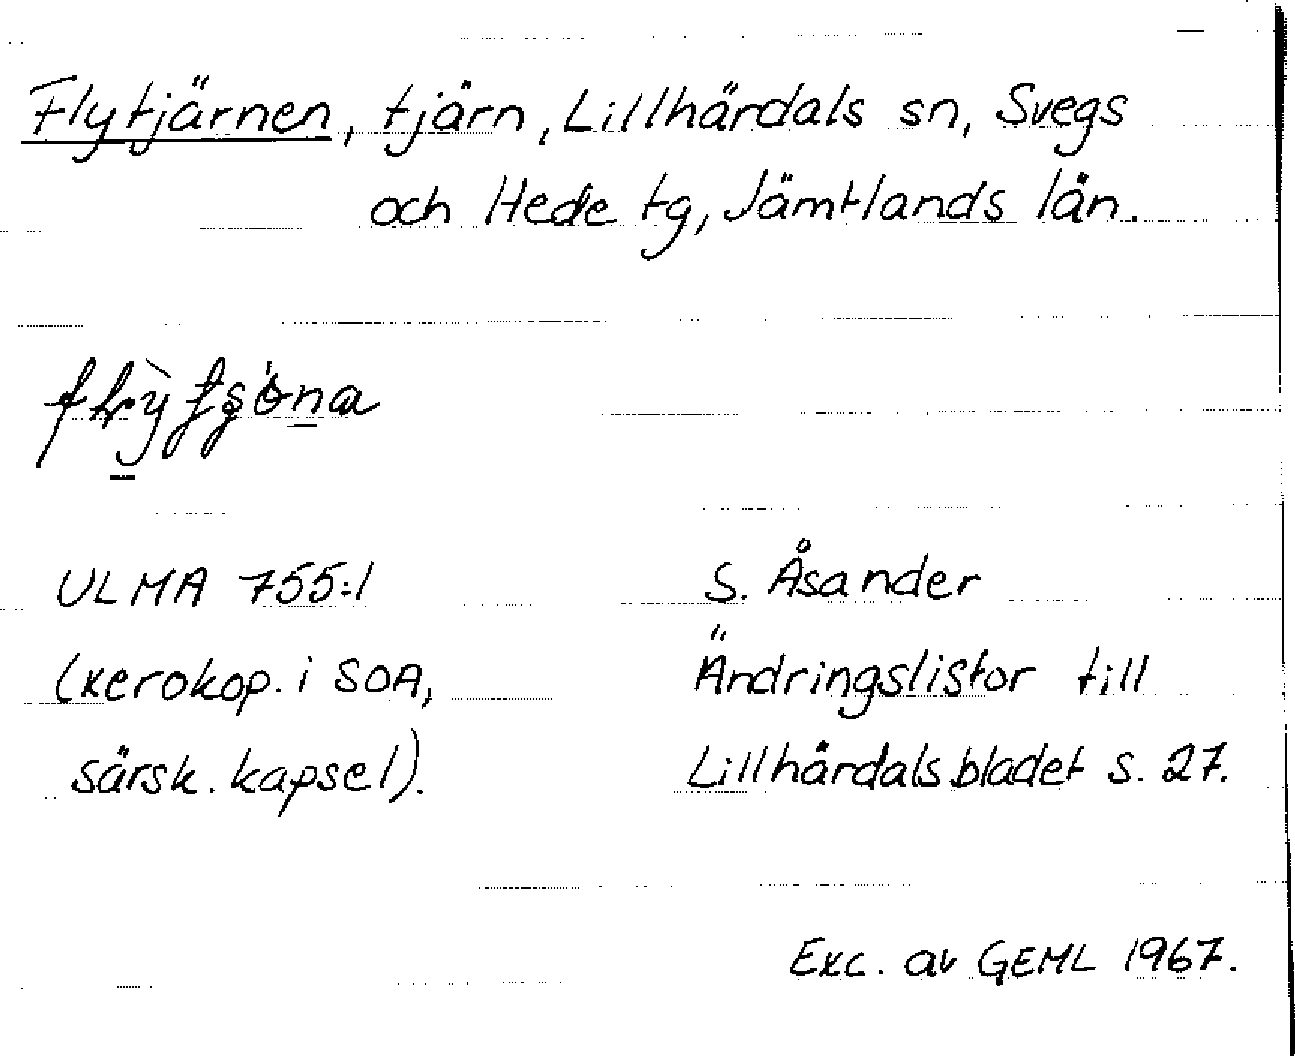 Flytjärnen, tjärn, Lillhärdals sn, Svegs
och Hede tg, Jämtlands län.
ULMA 755:1
(xerokop. i SOA,
särsk. kapsel).
S. Åsander
Ändringslistor till
Lillhärdalsbladet s. 27.
Exc. av GEML 1967.